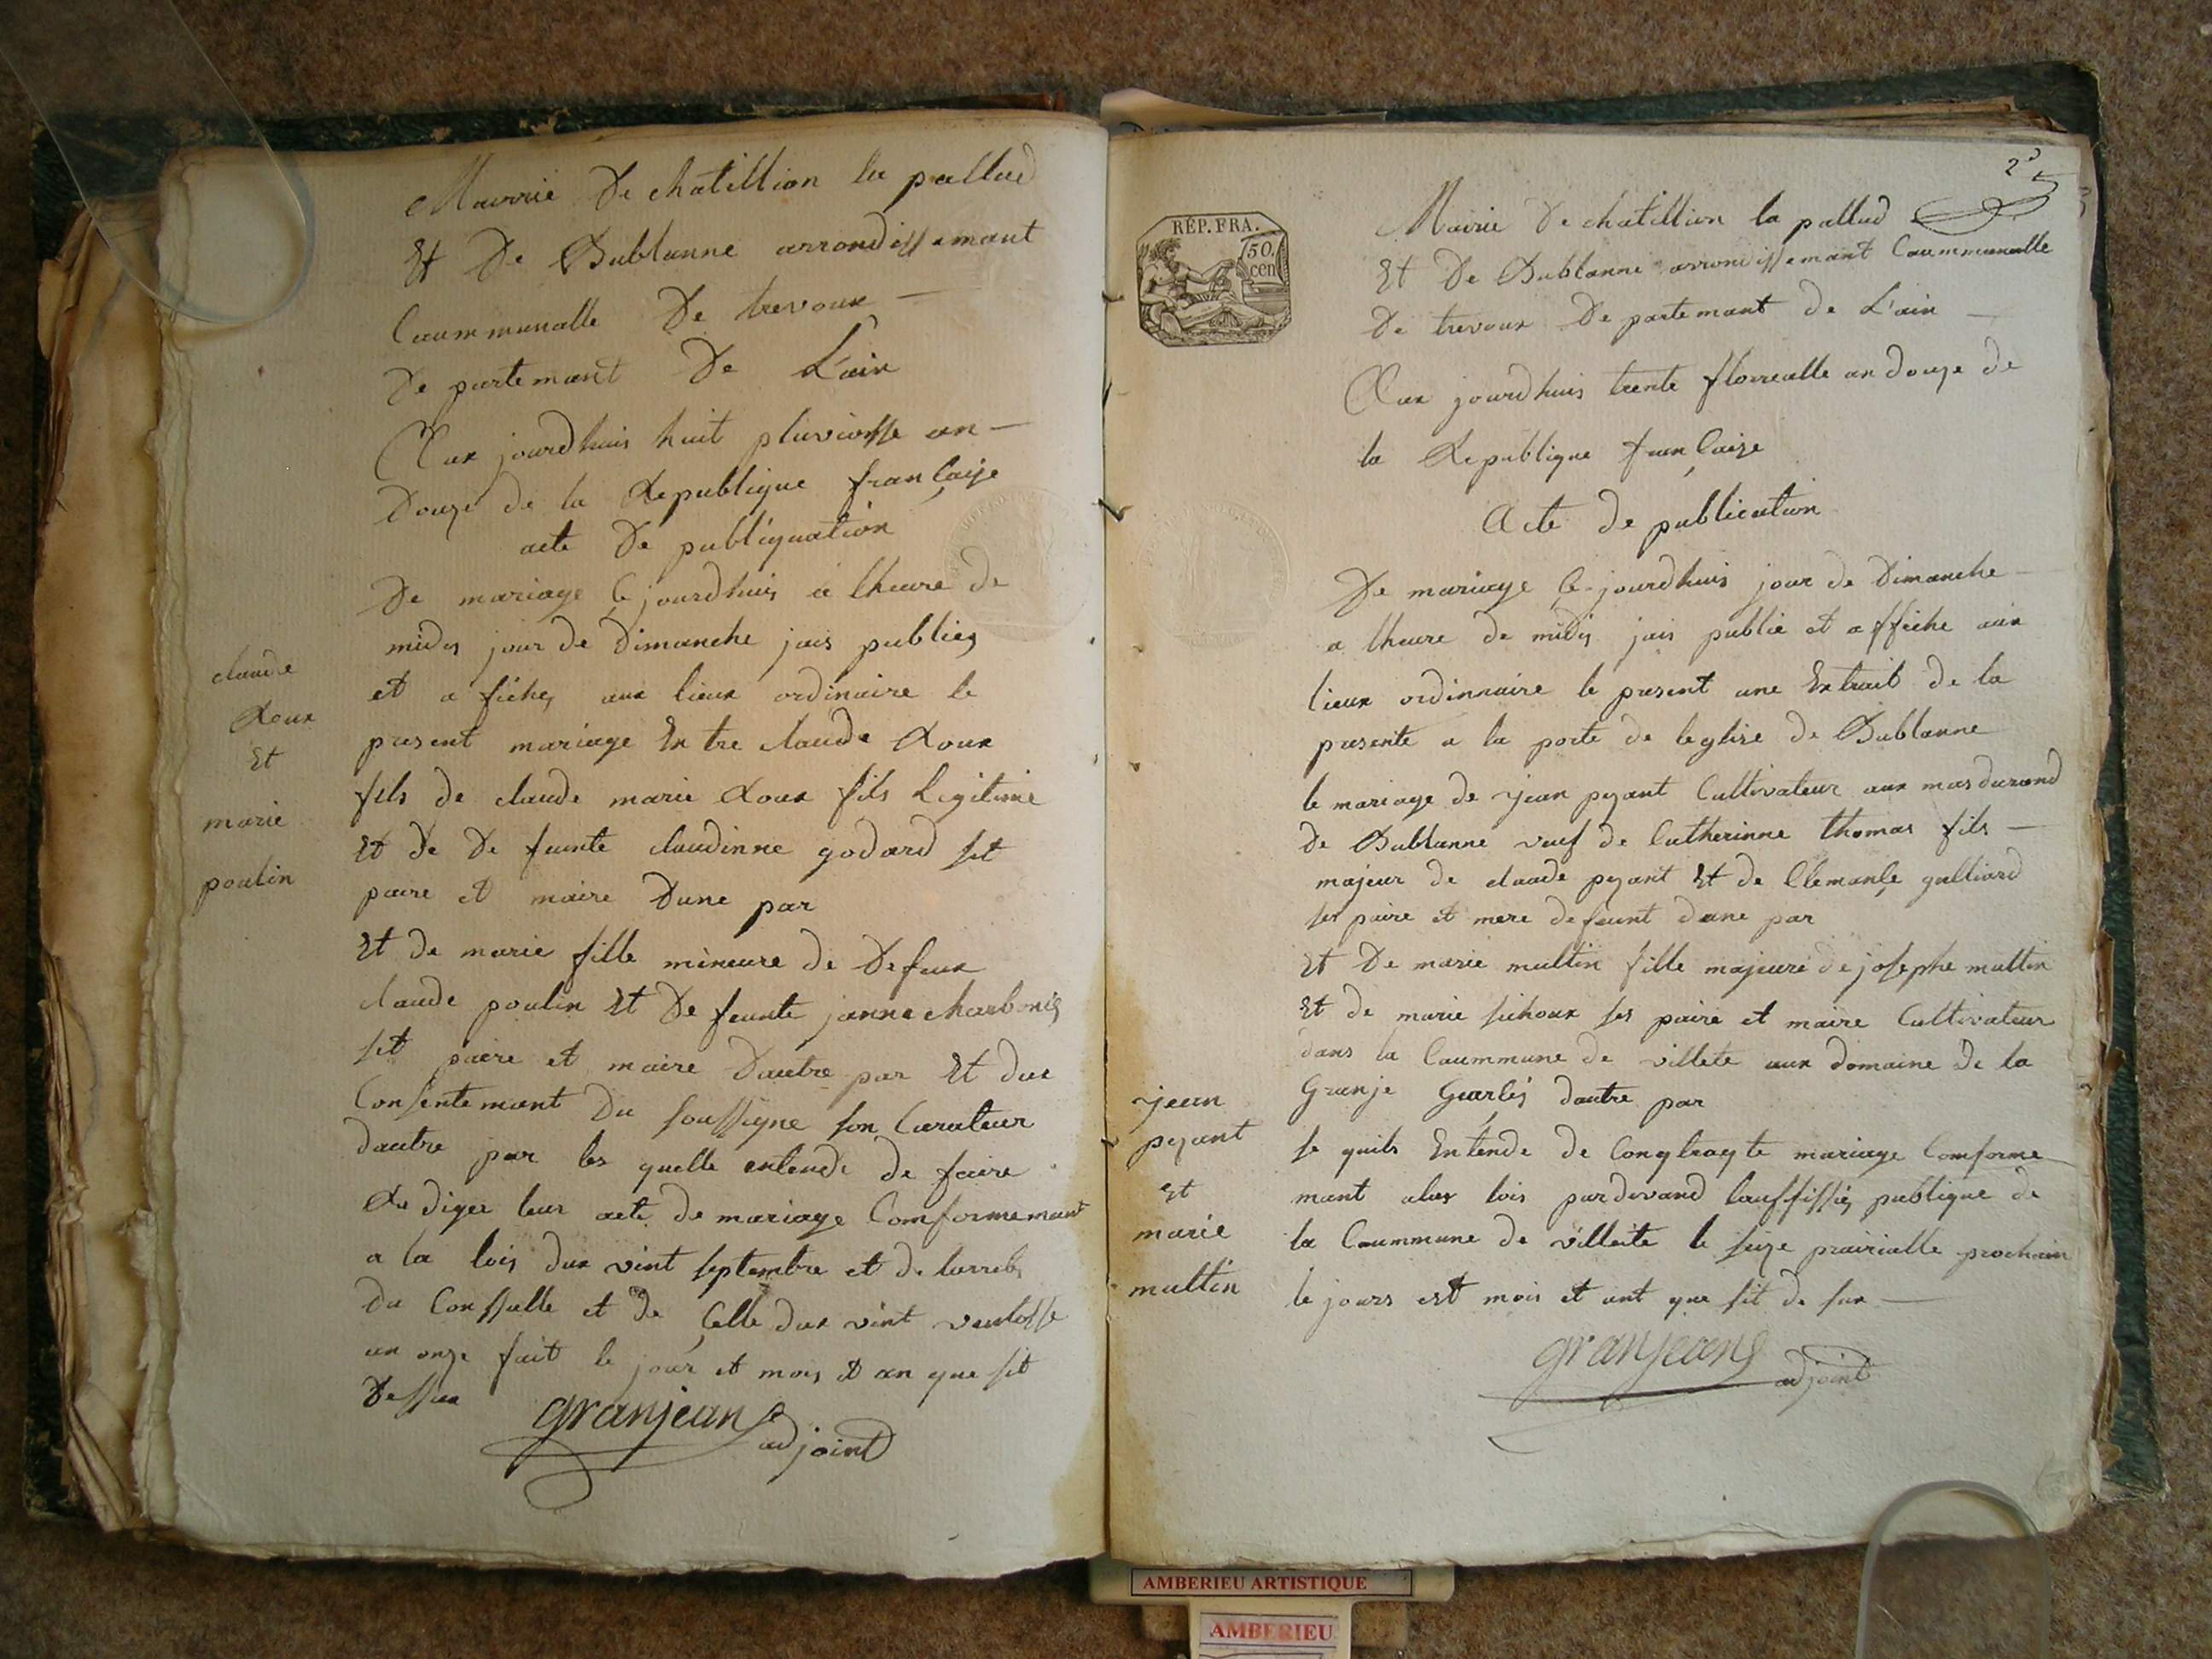 Mairrie De chatillion la pallud
Et De Dublanne arrondissemant
Caummunalle De trevoux
De partemant De L'ain
Aux jourdhuis huit pluviosse an
Douze de la Republique française
acte De publiquation
De mariage çe jourdhuis a lheure de
midy jour de Dimanche jais publies
et a fiche, aux lieux ordinaire le
present mariage Entre claude Roux
fils de claude marie Roux fils Legitime
Et de De feunte claudinne godard set
paire et maire Dune par
Et de marie fille mineure de Defeux
claude poulin Et De feunte janne charbonis
set paire et maire Dautre par Et dux
Consentemant Du soussigne son Curateur
dautre par les quelle entende de faire
Re diger leur acte de mariage Comformemant
a la lois dux vint septembre et de larrete
du Conssulle et de Çelle dux vint ventosse
an onze fait le jour et mois et an que sit
Dessux
granjean
adjoint
claude
Roux
Et
marie
poulin
2
RÉP. FRA.
50.
cen
Mairie De chatillion la pallud
Et De Dublanne arrondissemant Caummunalle
De trevoux De partemant de L'ain
Aux jourdhuis trente florealle an douze de
la Republique française
Acte de publication
De mariage çe jourdhuis jour de Dimanche
a lheure de midy jais publie et affiche aux
lieux ordinnaire le present une Extrait de la
presente a la porte de leglise de Dublanne
le mariage de jean pyant Cultivateur aux mas durand
De Dublanne veuf de Catherinne thomas fils
majeur de claude pyant Et de Clemançe gulliard
ses paire et mere defeunt dune par
Et De marie multin fille majeure de josephe multin
Et de marie sichoux ses paire et maire Cultivateur
dans la Caummune de villete aux domaine de la
Granje Garlis dautre par
se quils Entende de Congtragte mariage Comforme
mant alas lois pardevand lauffissié publique de
la Caummune de villeite le seize prairialle prochain
le jours est mois et ant que sit de sux
granjean
adjoint
jean
pyant
Et
marie
multin
AMBERIEU ARTISTIQUE
AMBERIEU